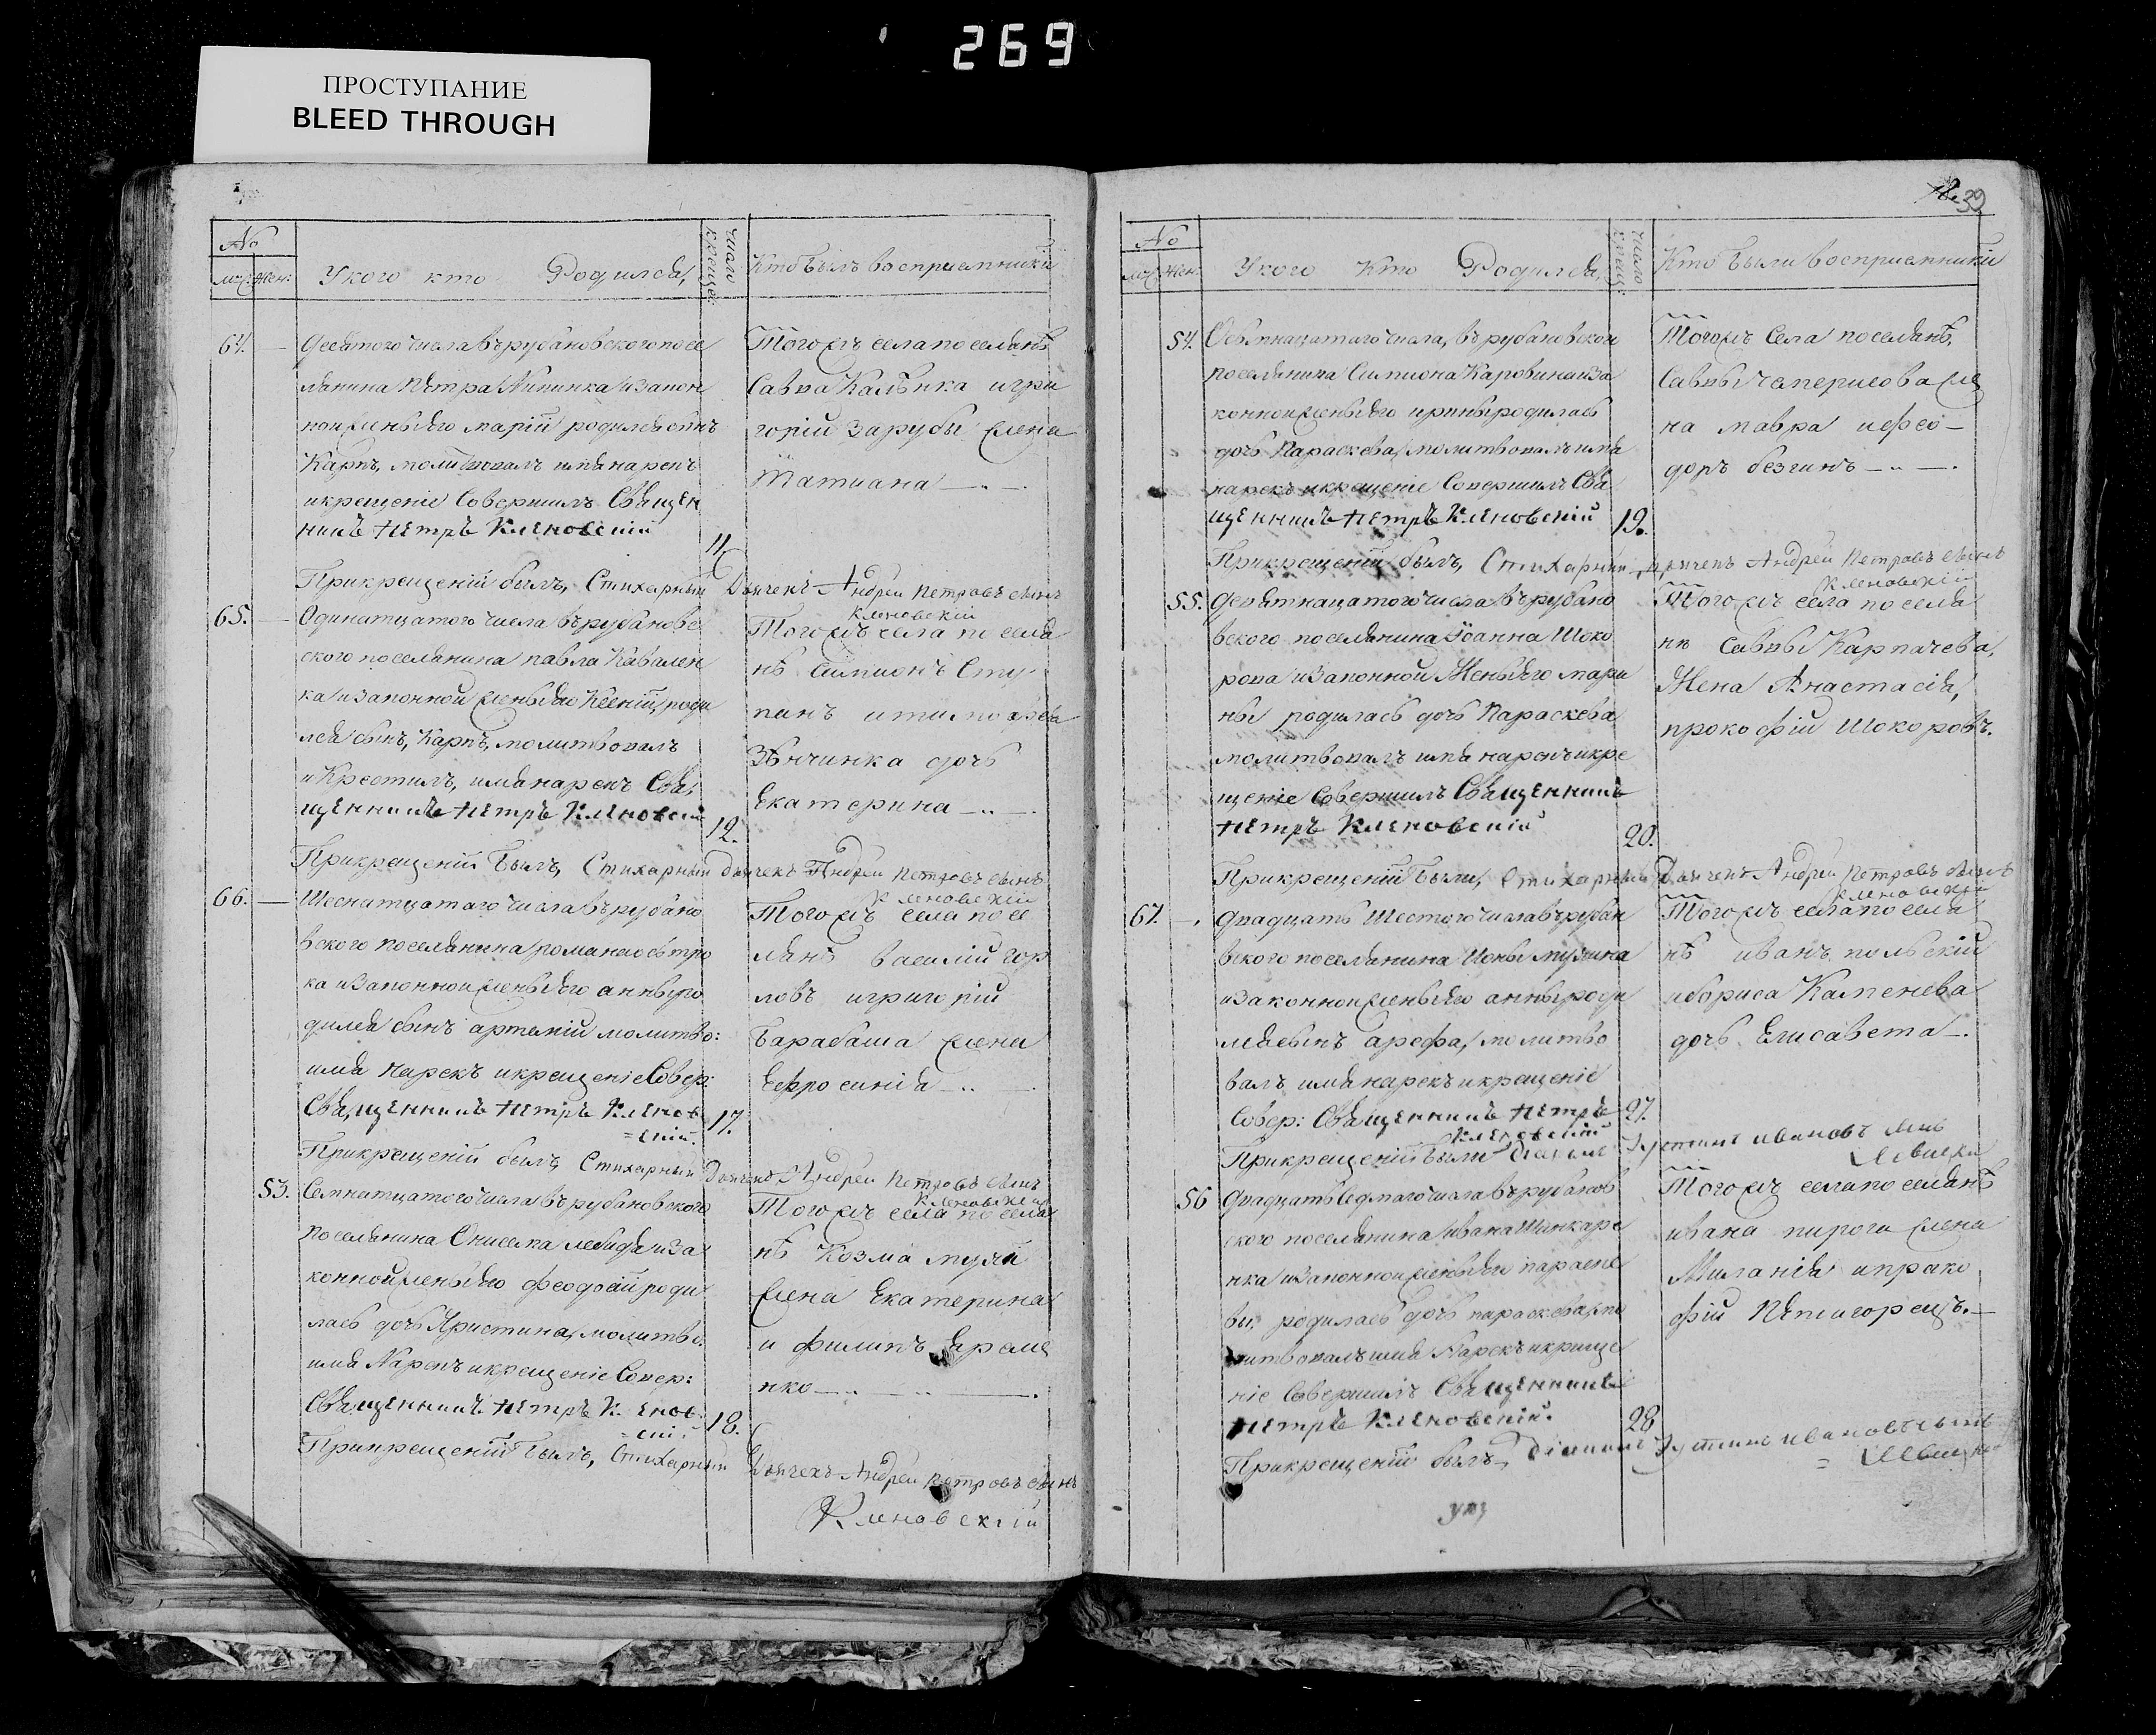 269
ПРОСТУПАНИЕ
BLEED THROUGH
№
муж: жен:
У кого кто Родился,
число крещен:
Кто был восприемники
64.
Десятого числа въ рубановского посе
лянина Петра изакон
ной жены его марiи родился сынъ
Карпъ, молитвовалъ имя нарекъ
и крещенiе Совершилъ Священ
никъ Петръ Кленовскiй
11
Тогожъ села поселянъ
Савва Калънка и гри
горiй Зарубы жена
Татиана
При крещенiй былъ, Стихарный Дьячекъ Андрей Петровъ сынъ
Кленовскiй
65.
Одинатцатого числа въ рубановс
ского поселянина павла Кавален
ка и законной жены его Ксенiи, роди
лся сынъ, Карпъ, молитвовалъ
и Крестилъ, имя нарекъ Свя
щенникъ Петръ Кленовскiй
12.
Тогожъ села поселя
нъ Симионъ Сту
пакъ и
дочь
Екатерина
При крещенiй былъ, Стихарный Дьячекъ Андрей Петровъ сынъ
Кленовскiй
66.
Шеснатцатаго числа въ рубано
вского поселянина романа
ка и законной жены его анны ро
дился сынъ артемiй молитво:
имя Нарекъ и крещенiе Совер:
Священникъ Петръ Кленов
=скiй.
17.
Тогожъ села посе
лянъ василiй гор
ловъ и григорiй
Барабаша жена
Ефросинiя
При крещенiй былъ, Стихарный Дьячекъ Андрей Петровъ сынъ
Кленовскiй
53.
Семнатцатого числа въ рубановского
поселянина Ониська лебидя и за
конной жены его феодосiи роди
лась дочь Христина, молитво.
имя Нарекъ и крещенiе Совер:
Священникъ Петръ К енов
скiй
18.
Тогожъ села поселя
нъ Козма
жена Екатерина
и филипъ Ереме
нко
При крещенiй былъ, Стихарный Дьячекъ Андрей Петровъ сынъ
Кленовскiй
39
№
муж: жен:
У кого Кто Родился,
число крещ:
Кто были восприемники
54.
Осьмнацатаго числа, въ рубановской
поселянина Симиона Каровина и за
конной жены его ирины родилась
дочь Параскева, молитвовалъ имя
нарекъ и крещенiе Совершилъ Свя
щенникъ Петръ Кленовскiй
19.
Тогожъ Села поселянъ,
Саввы жe
на мавра и фео-
доръ безгинъ
При крещенiй былъ, Стихарный Дьячекъ Андрей Петровъ сынъ
Кленовскiй
55.
Девятнацатого числа въ рубано
вского поселянина Iоанна Шоко
рова и законной Жены его мари
ны родилась дочь Параскева
молитвовалъ имя нарекъ и кре
щенiе Совершилъ Священникъ
Петръ Кленовскiй
20.
Тогожъ села поселя
нъ Саввы Карпачева,
Жена Анастасiя,
прокофiй Шокоровъ.
При крещенiй были, Стихарный Дьячекъ Андрей Петровъ сынъ
Кленовскiй
67.
Двадцать Шестого числа въ рубан
вского поселянина Ионы
и законной жены его анны роди
лся сынъ арефа, молитво
валъ имя нарекъ и крещенiе
Совер: Священникъ Петръ
Кленовскiй
27.
Тогожъ села поселя
нъ иванъ польскiй
и бориса Каменева
дочь Елисавета
При крещенiй были Устинъ ивановъ сынъ
56
Двадцать Седмаго числа въ рубанов
ского поселянина ивана Шинкаре
нка и законной жены его параске
вы, родилась дочь параскева, мо
литвовалъ имя Нарекъ и креще
нiе Совершилъ Священникъ
Петръ Кленовскiй.
28
Тогожъ села поселянъ
ивана пирога жена
Миланiя и проко
фiй Пятигорецъ.
При крещенiй былъ, Устинъ ивановъ сынъ